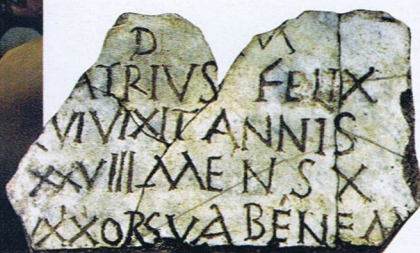 D M
ATRIVS FELIX
QVIVIXIT ANNIS
XXVIIII MENS X
VXXORSVA BENE M